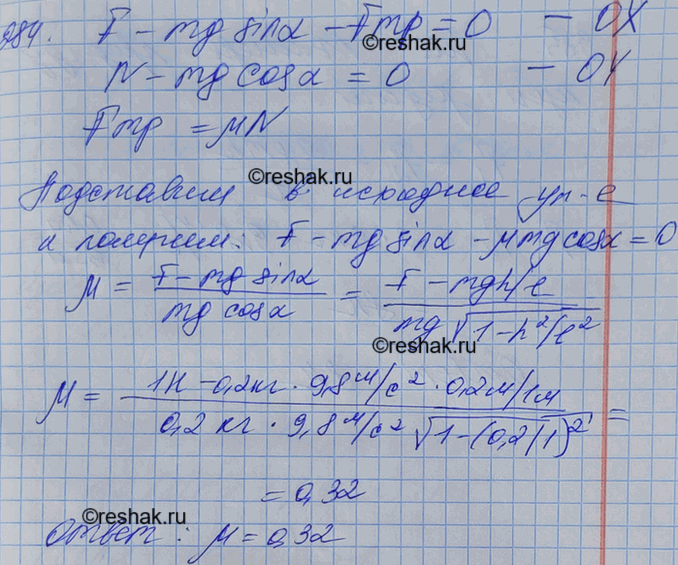 984. F - mg sinα - Fтр = 0 - OX
N - mg cosα = 0 - OY
Fтр = μN
©reshak.ru
Подставим в исходное ур-е
и получим: F - mg sinα - μmg cosα = 0
M = (F - mg sinα)/(mg cosα) = (F - mgh/l)/(mg√(1 - h²/l²))
©reshak.ru
M = (1Н - 0,2кг · 9,8м/с² · 0,2м/1м)/(0,2 кг · 9,8м/с² √(1-(0,2/1)²)) =
= 0,32
©reshak.ru
Ответ: μ = 0,32
©reshak.ru